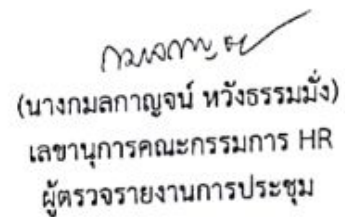 (นางกมลกาญจน์ หวังธรรมมั่ง)
เลขานุการคณะกรรมการ HR
ผู้ตรวจรายงานการประชุม